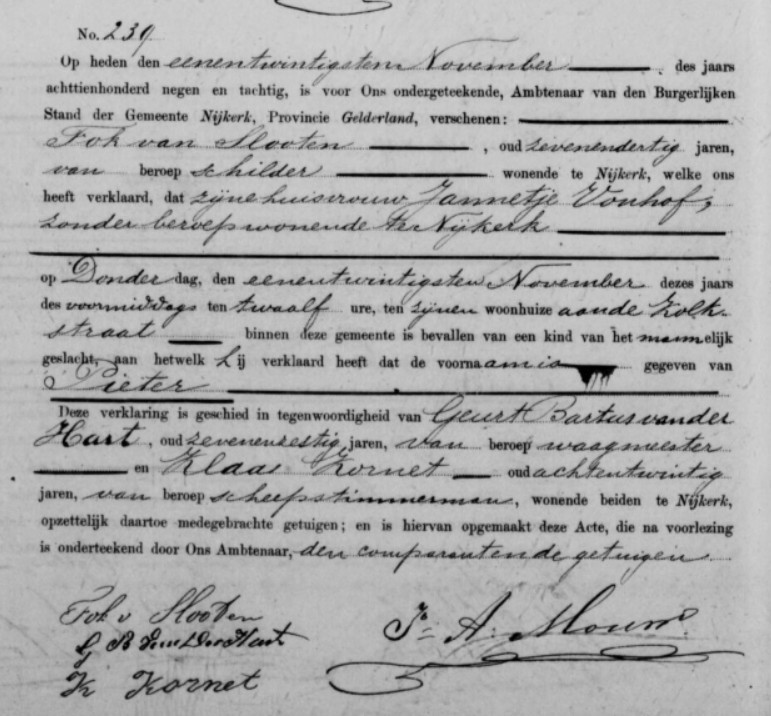 No. 239
Op heden den eenentwintigsten November des jaars
achttienhonderd negen en tachtig, is voor Ons ondergeteekende, Ambtenaar van den Burgerlijken
Stand der Gemeente Nijkerk, Provincie Gelderland, verschenen:
Fok van Slooten , oud zevenendertig jaren,
van beroep schilder wonende te Nijkerk, welke ons
heeft verklaard, dat zijne huisvrouw Jannetje Vonhof,
zonder beroep wonende te Nijkerk
op Donderdag, den eenentwintigsten November dezes jaars
des voormiddags ten twaalf ure, ten zijnen woonhuize aan de Kolk-
straat binnen deze gemeente is bevallen van een kind van het mannelijk
geslacht, aan hetwelk hij verklaard heeft dat de voornaam is gegeven van
Pieter
Deze verklaring is geschied in tegenwoordigheid van Geurt Bartus van der
Hart, oud zevenenzestig jaren, van beroep waagmeester
en Klaas Kornet oud achtentwintig
jaren, van beroep scheepstimmerman, wonende beiden te Nijkerk,
opzettelijk daartoe medegebrachte getuigen; en is hiervan opgemaakt deze Acte, die na voorlezing
is onderteekend door Ons Ambtenaar, den comparant en de getuigen
Fok v Slooten
G B van Der Hart
K Kornet